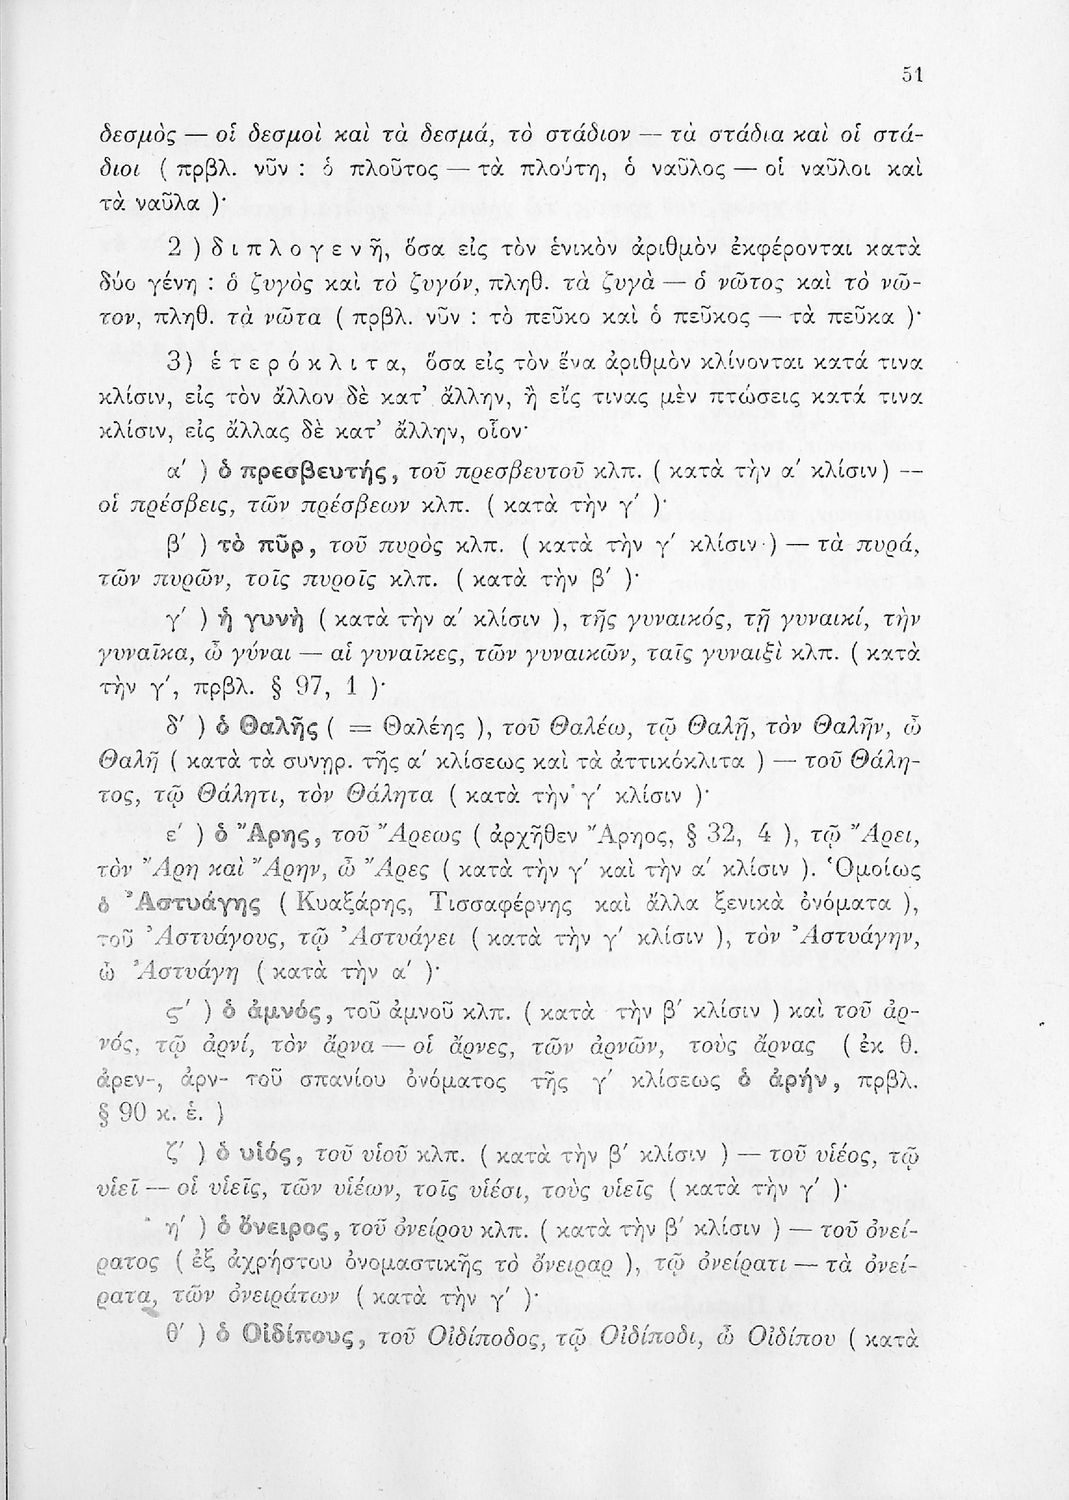 51
δεσμὸς — οἱ δεσμοὶ καὶ τὰ δεσμά, τὸ στάδιον — τὰ στάδια καὶ οἱ στά-
διοι ( πρβλ. νῦν : ὁ πλοῦτος — τὰ πλούτη, ὁ ναῦλος — οἱ ναῦλοι καὶ
τὰ ναῦλα )·
2 ) δ ι π λ ο γ ε ν ῆ, ὅσα εἰς τὸν ἑνικὸν ἀριθμὸν ἐκφέρονται κατὰ
δύο γένη : ὁ ζυγὸς καὶ τὸ ζυγόν, πληθ. τὰ ζυγὰ — ὁ νῶτος καὶ τὸ νῶ-
τον, πληθ. τὰ νῶτα ( πρβλ. νῦν : τὸ πεῦκο καὶ ὁ πεῦκος — τὰ πεῦκα )·
3) ἑ τ ε ρ ό κ λ ι τ α, ὅσα εἰς τὸν ἕνα ἀριθμὸν κλίνονται κατά τινα
κλίσιν, εἰς τὸν ἄλλον δὲ κατ’ ἄλλην, ἢ εἴς τινας μὲν πτώσεις κατά τινα
κλίσιν, εἰς ἄλλας δὲ κατ’ ἄλλην, οἷον·
α′ ) ὁ πρεσβευτής, τοῦ πρεσβευτοῦ κλπ. ( κατὰ τὴν α′ κλίσιν) —
οἱ πρέσβεις, τῶν πρέσβεων κλπ. ( κατὰ τὴν γ′ )·
β′ ) τὸ πῦρ, τοῦ πυρὸς κλπ. ( κατὰ τὴν γ′ κλίσιν ) — τὰ πυρά,
τῶν πυρῶν, τοῖς πυροῖς κλπ. ( κατὰ τὴν β′ )·
γ′ ) ἡ γυνὴ ( κατὰ τὴν α′ κλίσιν ), τῆς γυναικός, τῇ γυναικί, τὴν
γυναῖκα, ὦ γύναι — αἱ γυναῖκες, τῶν γυναικῶν, ταῖς γυναιξὶ κλπ. ( κατὰ
τὴν γ′, πρβλ. § 97, 1 )·
δ′ ) ὁ Θαλῆς ( = Θαλέης ), τοῦ Θαλέω, τῷ Θαλῇ, τὸν Θαλῆν, ὦ
Θαλῆ ( κατὰ τὰ συνῃρ. τῆς α′ κλίσεως καὶ τὰ ἀττικόκλιτα ) — τοῦ Θάλη-
τος, τῷ Θάλητι, τὸν Θάλητα ( κατὰ τὴν γ′ κλίσιν )·
ε′ ) ὁ Ἄρης, τοῦ Ἄρεως ( ἀρχῆθεν Ἄρηος, § 32, 4 ), τῷ Ἄρει,
τὸν Ἄρη καὶ Ἄρην, ὦ Ἄρες ( κατὰ τὴν γ′ καὶ τὴν α′ κλίσιν ). Ὁμοίως
ὁ Ἀστυάγης ( Κυαξάρης, Τισσαφέρνης καὶ ἄλλα ξενικὰ ὀνόματα ),
τοῦ Ἀστυάγους, τῷ Ἀστυάγει ( κατὰ τὴν γ′ κλίσιν ), τὸν Ἀστυάγην,
ὦ Ἀστυάγη ( κατὰ τὴν α′ )·
ς′ ) ὁ ἀμνός, τοῦ ἀμνοῦ κλπ. ( κατὰ τὴν β′ κλίσιν ) καὶ τοῦ ἀρ-
νός, τῷ ἀρνί, τὸν ἄρνα — οἱ ἄρνες, τῶν ἀρνῶν, τοὺς ἄρνας ( ἐκ θ.
ἀρεν-, ἀρν- τοῦ σπανίου ὀνόματος τῆς γ′ κλίσεως ὁ ἀρήν, πρβλ.
§ 90 κ. ἑ. )
ζ′ ) ὁ υἱός, τοῦ υἱοῦ κλπ. ( κατὰ τὴν β′ κλίσιν ) — τοῦ υἱέος, τῷ
υἱεῖ — οἱ υἱεῖς, τῶν υἱέων, τοῖς υἱέσι, τοὺς υἱεῖς ( κατὰ τὴν γ′ )·
η′ ) ὁ ὄνειρος, τοῦ ὀνείρου κλπ. ( κατὰ τὴν β′ κλίσιν ) — τοῦ ὀνεί-
ρατος ( ἐξ ἀχρήστου ὀνομαστικῆς τὸ ὄνειραρ ), τῷ ὀνείρατι — τὰ ὀνεί-
ρατα, τῶν ὀνειράτων ( κατὰ τὴν γ′ )·
θ′ ) ὁ Οἰδίπους, τοῦ Οἰδίποδος, τῷ Οἰδίποδι, ὦ Οἰδίπου ( κατὰ